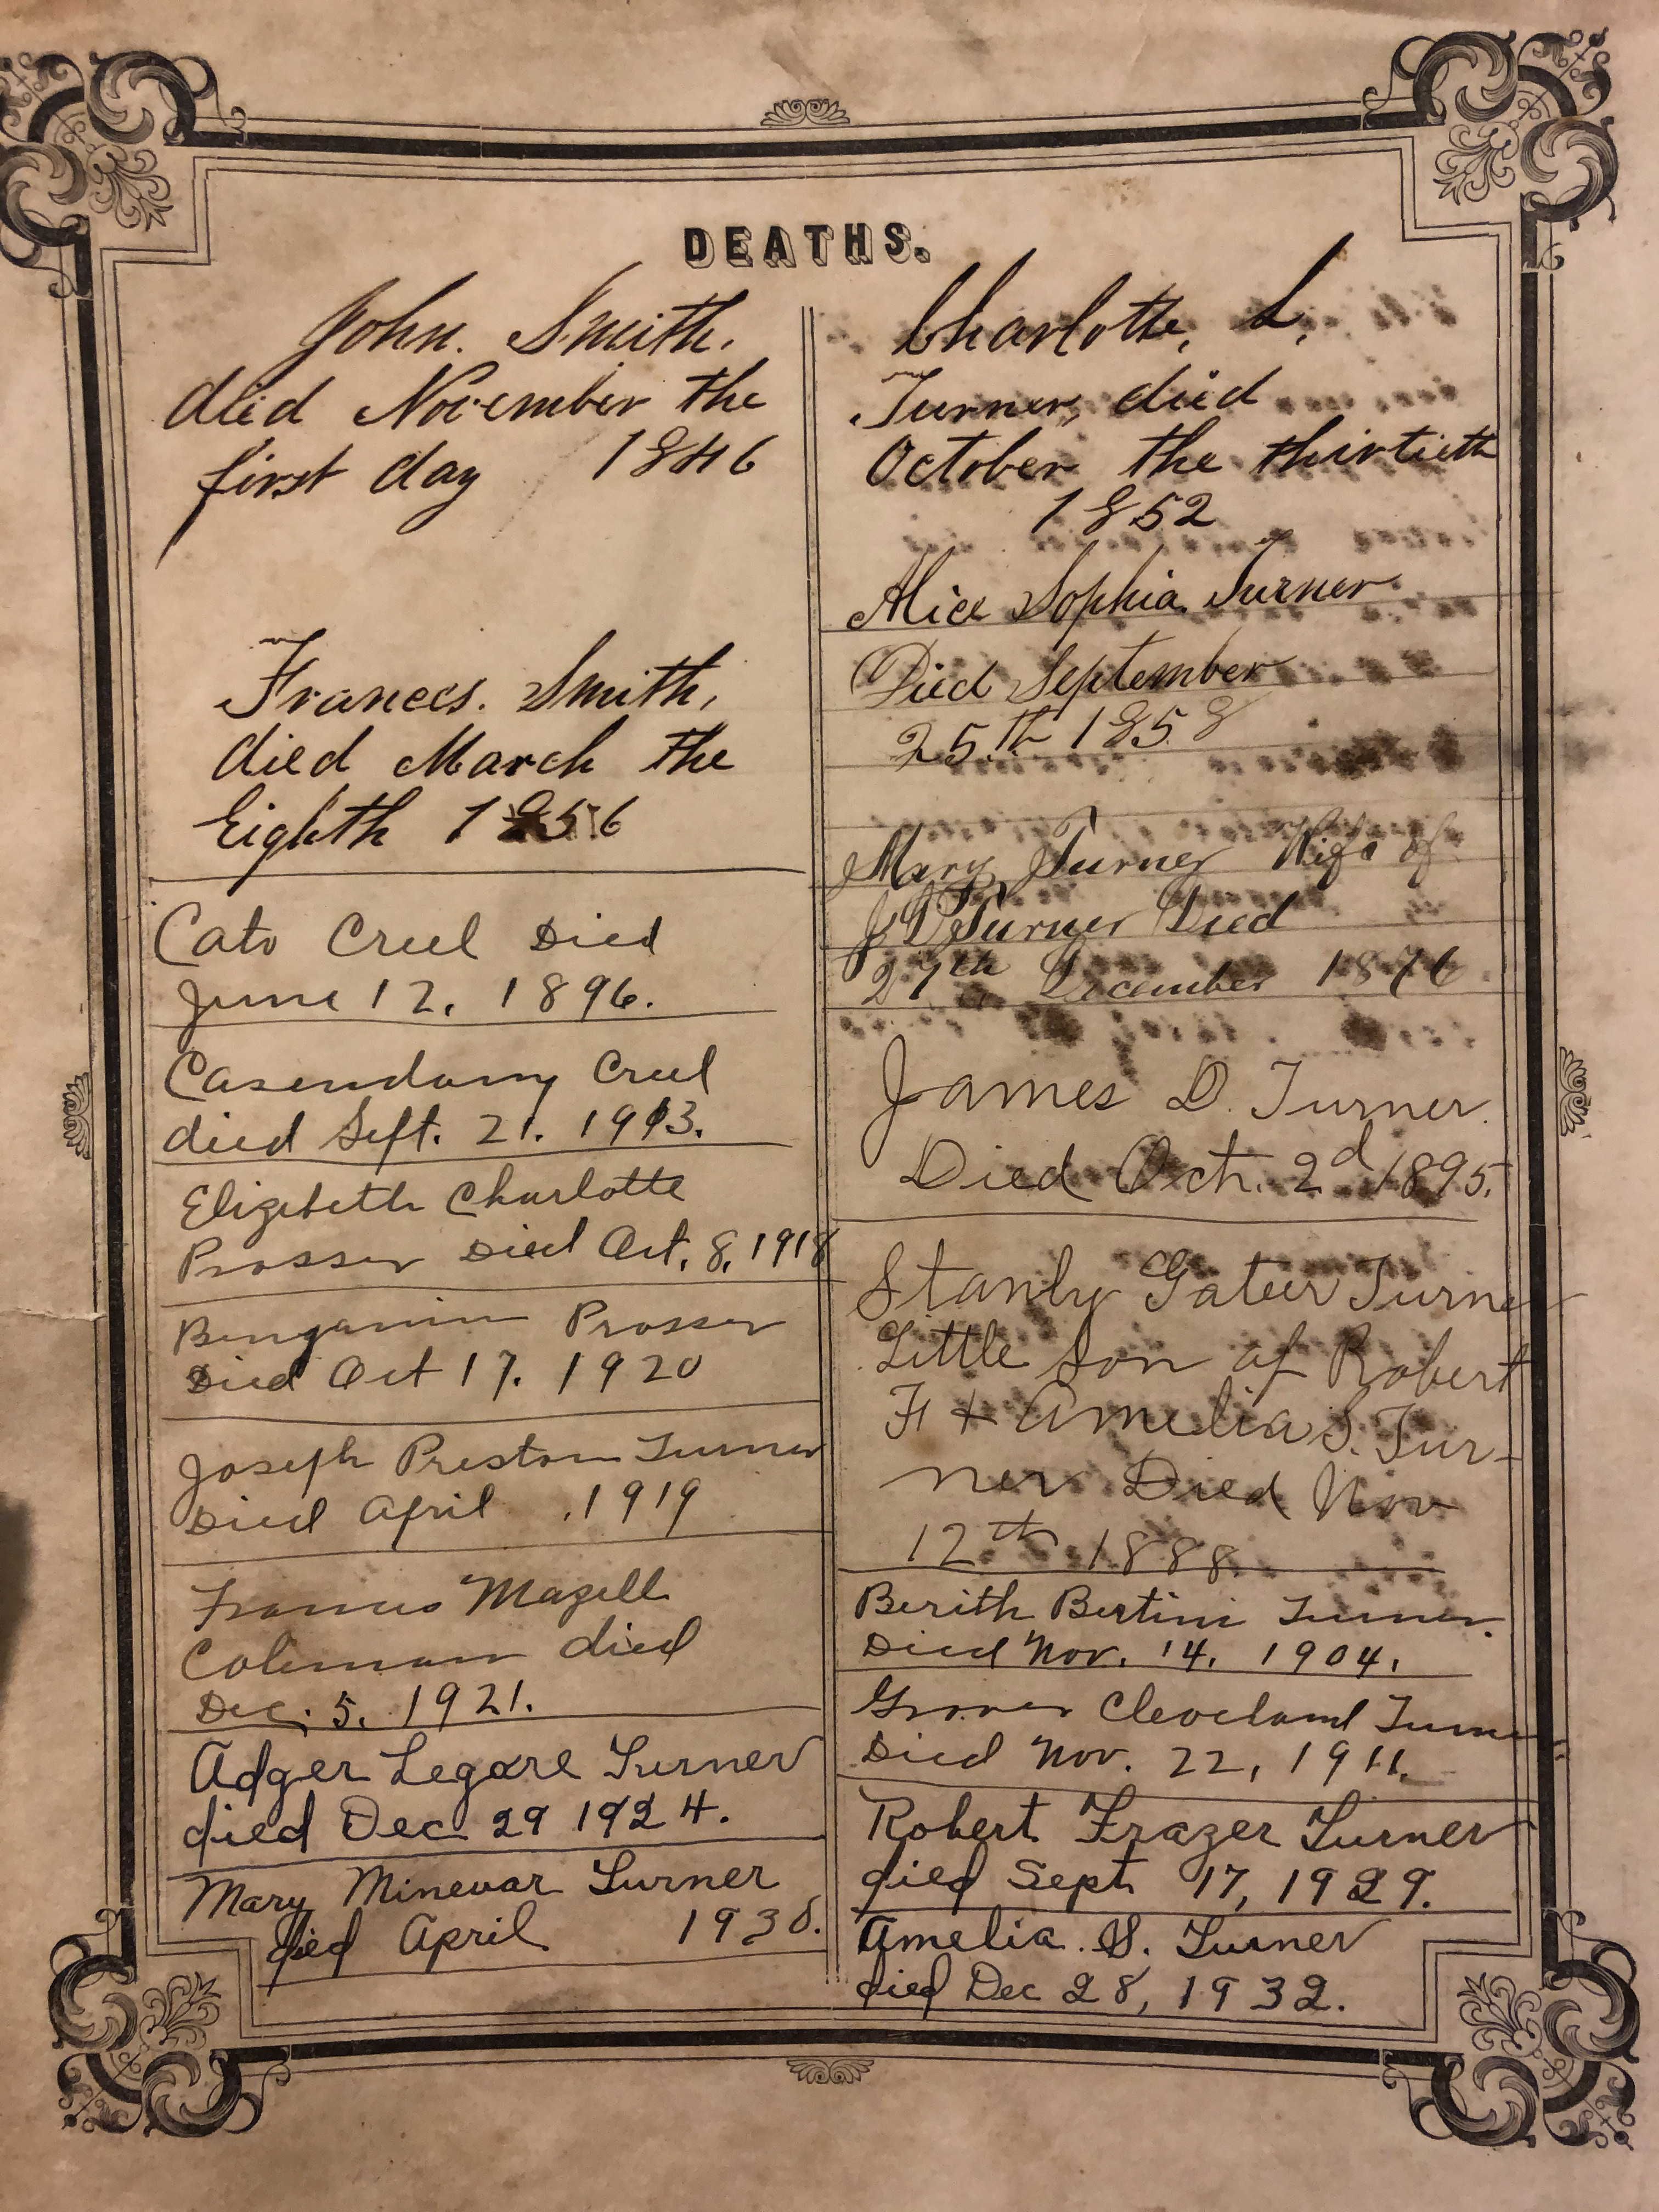 DEATHS.
John. Smith.
died November the
first day 1846
Frances. Smith,
died March the
Eighth 1856
Cato Creel Died
June 12, 1896.
Casendany Creel
died Sept. 21. 1913.
Elizibeth Charlotte
Prosser Died Oct. 8, 1918
Bengamin Prosser
Died Oct 17. 1920
Joseph Preston Turner
Died April . 1919
Francis Mazell
Coleman died
Dec. 5. 1921.
Adger Legare Turner
died Dec 29 1924.
Mary Minevar Turner
died April 1930.
Charlotte, L,
Turner, died
October the thirtieth
1852
Alice Sophia Turner
Died September
25.th 1858
Mary Turner Wife of
J D Turner Died
27th December 1876
James D. Turner.
Died Oct. 2d 1895.
Stanly Gateer Turner
Little Son of Robert
F + Amelia S. Tur-
ner Died Nov
12th 1888
Berith Bertini Turner.
Died Nov. 14. 1904.
Grover Cleveland Turner
Died Nov. 22, 1911.
Robert Frazer Turner
died Sept 17, 1929.
Amelia. S. Turner
died Dec 28, 1932.